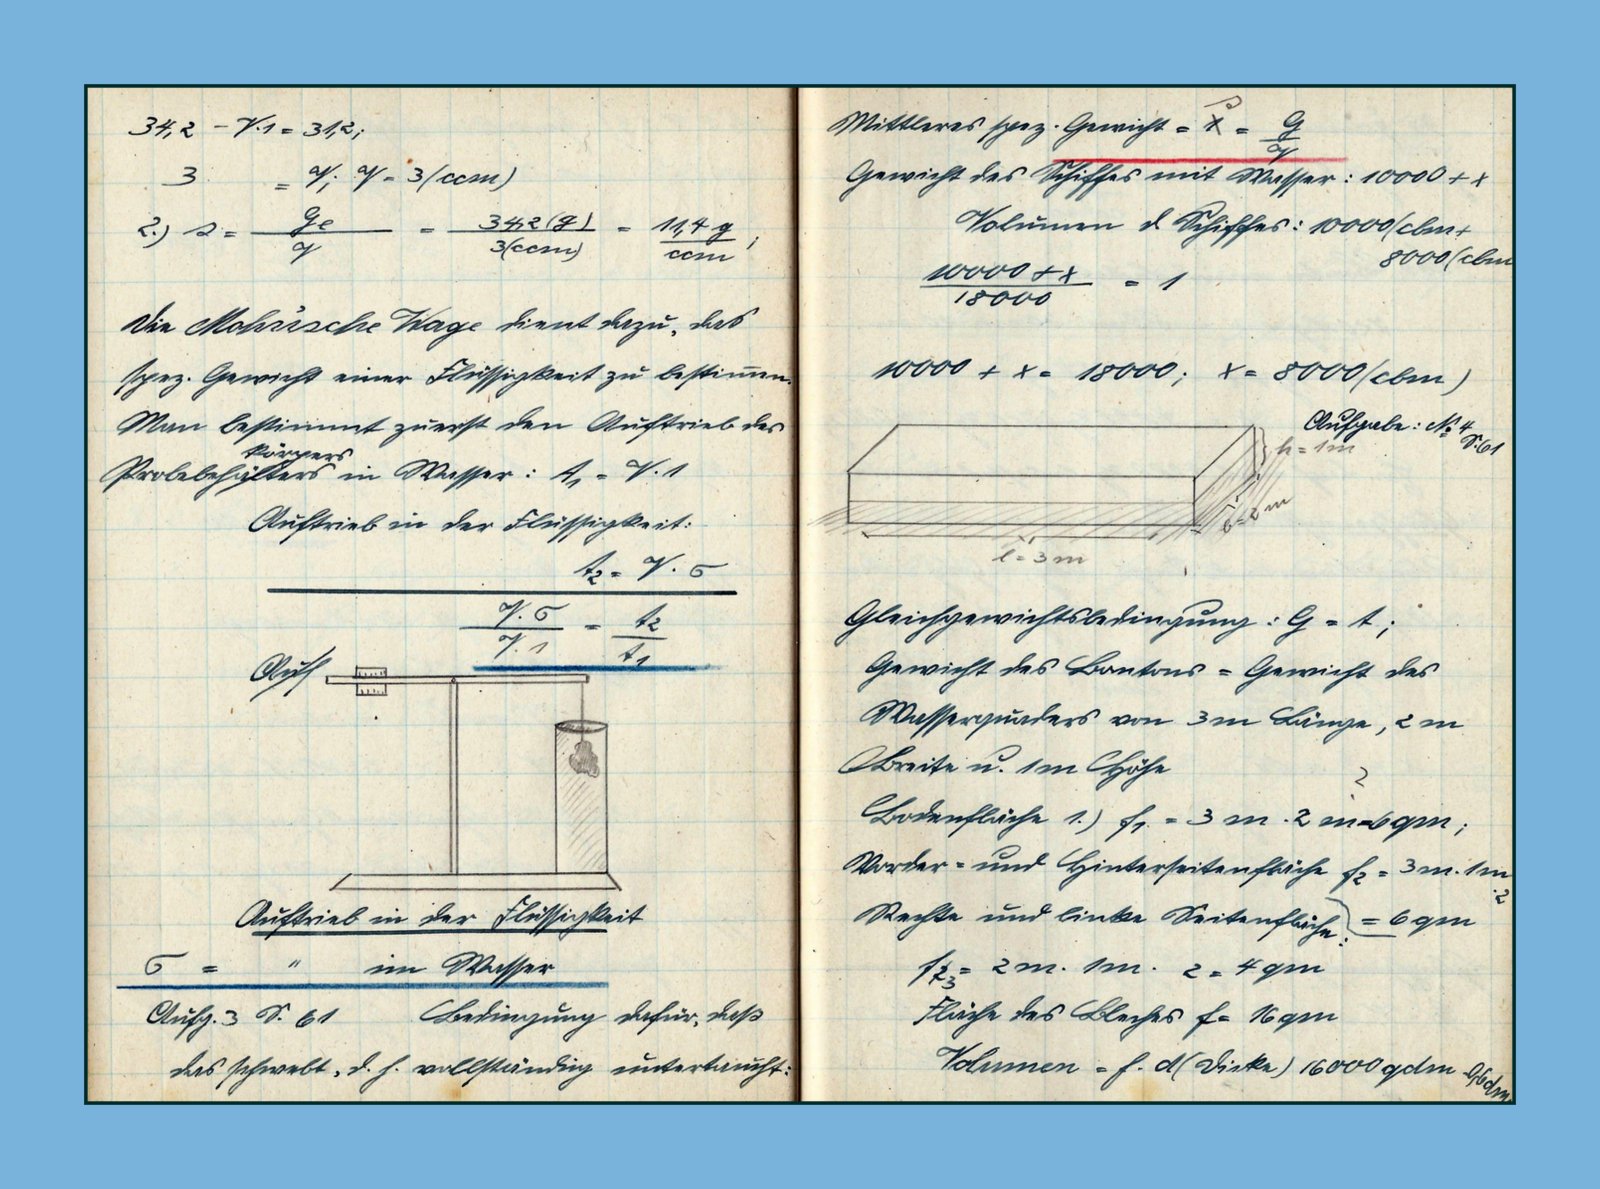 34,2 - V·1 = 31,2;
3 = V; V = 3 (ccm)
2.) s = Ge / V = 34,2 (g) / 3 (ccm) = 11,4 g / ccm ;
Die Mohr'sche Wage dient dazu, das
spez. Gewicht einer Flüssigkeit zu bestimmen.
Man bestimmt zuerst den Auftrieb des
körpers
Probebehälters in Wasser: t1 = V·1
Auftrieb in der Flüssigkeit:
t2 = V·σ
V·σ / V·1 = t2 / t1
Auf
Auftrieb in der Flüssigkeit
σ = " im Wasser
Aufg. 3 S. 61 Bedingung dafür, daß
das schwebt, d. h. vollständig untertaucht:
Mittleres spez. Gewicht = = G / V
Gewicht des Schiffes mit Wasser: 10000 + x
Volumen d Schiffes: 10000 (cbm +
8000 (cbm
10000 + x / 18000 = 1
10000 + x = 18000; x = 8000 (cbm)
Aufgabe: No 4
S. 61
h = 1m
b = 2 m
l = 3 m
Gleichgewichtsbedingung: G = t;
Gewicht des Pontons = Gewicht des
Wasserquaders von 3 m Länge, 2 m
Breite u. 1 m Höhe
Bodenfläche 1.) f1 = 3 m · 2 m = 6 qm;
Vorder- und Hinterseitenfläche f2 = 3 m · 1 m
·2
Rechte und linke Seitenfläche: = 6 qm
f3 = 2 m · 1 m · 2 = 4 qm
Fläche des Bleches f = 16 qm
Volumen = f · d (Dicke) 1600 qdm